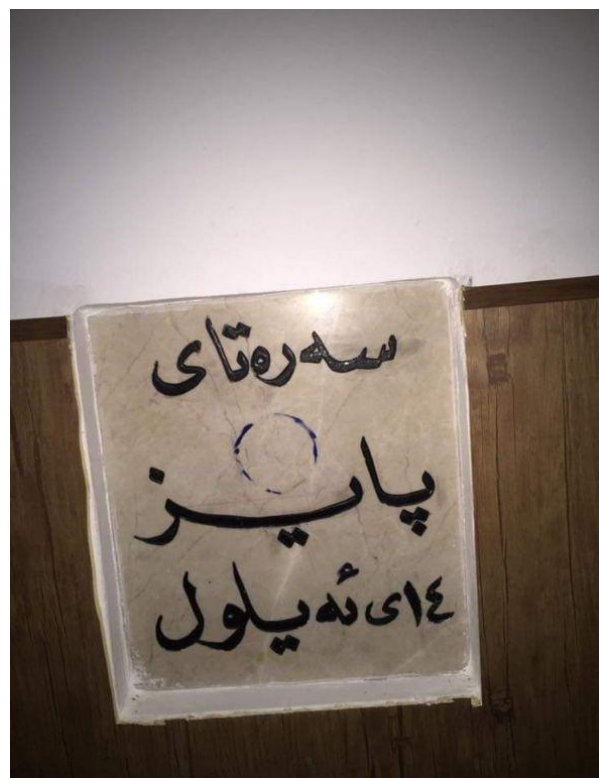 سەرەتای
پایز
١٤ی ئەیلول